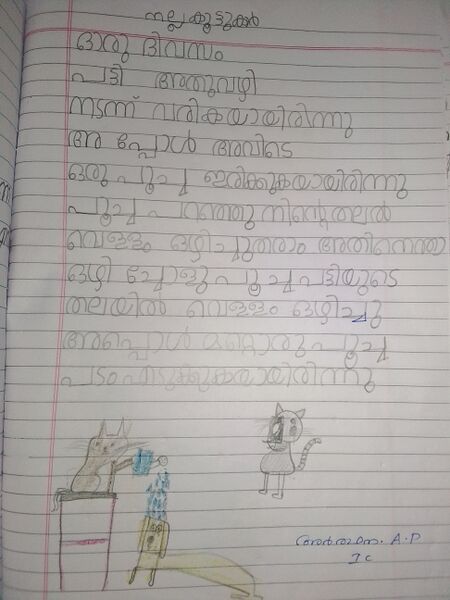 നല്ല കൂട്ടുകാർ
ഒരു ദിവസം
പട്ടി അതുവഴി
നടന്ന് വരികയായിരിന്നു
അ പ്പോൾ അവിടെ
ഒരു പൂച്ച ഇരിക്കുകയായിരിന്നു
പൂച്ച പറഞ്ഞു നിന്റെതലൽ
വെള്ളം ഒഴിച്ചുതരാം അതിനെന്താ
ഒഴി ച്ചോളു പൂച്ച പട്ടിയുടെ
തലയിൽ വെള്ളം ഒഴിച്ചു
അപ്പൊൾ മറ്റൊരു പൂച്ച
പടം എടുക്കുകയായിരിന്നു
A.P
I c